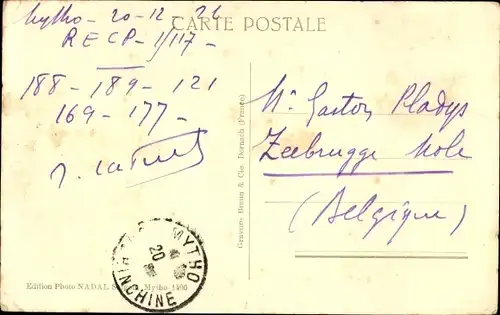 Mytho - 20-12-
CARTE POSTALE
RECP - 1/117 -
188 - 189 - 121
169 - 177 -
Mr Gaston Pladys
Zeebrugge Mole
(Belgique)
Gravure Braun & Cie, Dornach (France)
MYTHO
20
Edition Photo NADAL, Mytho